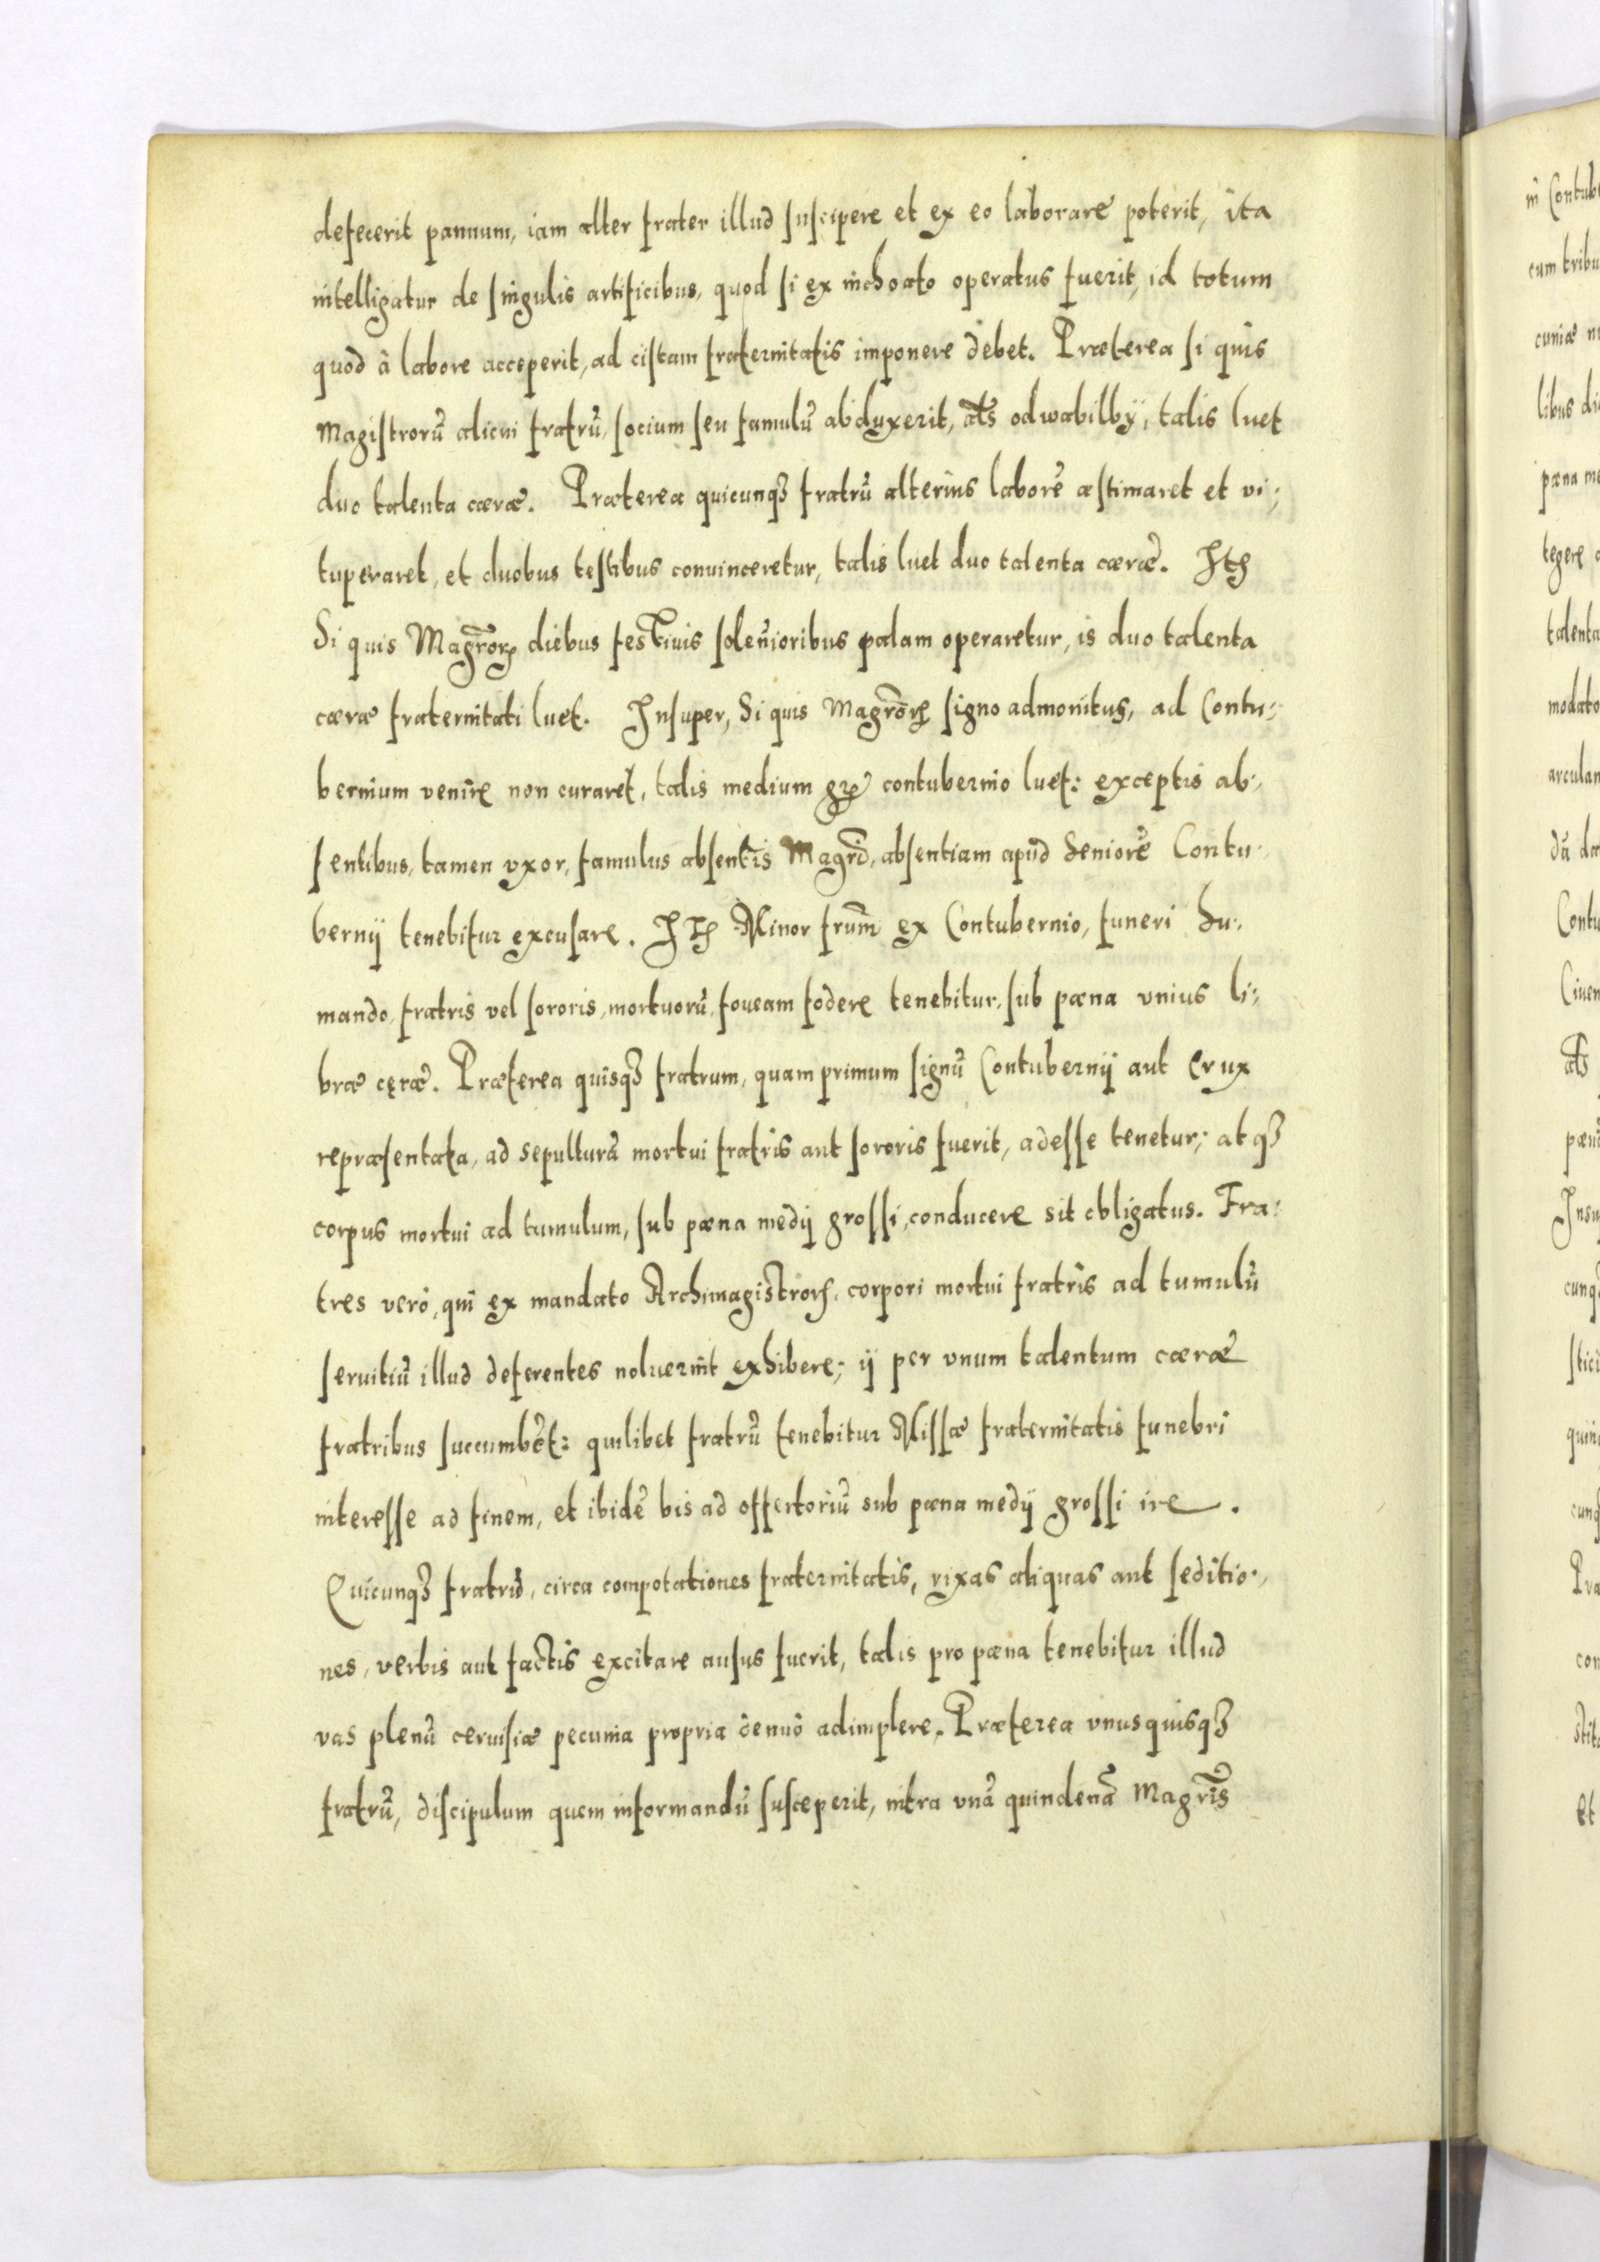 defecerit pannum, iam alter frater illud suscipere et ex eo laborare poterit, ita
intelligatur de singulis artificibus, quod si ex inchoato operatus fuerit, id totum
quod à labore acceperit, ad cistam fraternitatis imponere debet. Præterea si quis
Magistrorũ alicui fratrũ, socium seu famulũ abduxerit, als odwabilby, talis luet
duo talenta cæræ. Præterea quicunqꝫ fratrũ alterius laborẽ æstimaret et vi:
tuperaret, et duobus testibus conuinceretur, talis luet duo talenta cæræ. Itꝫ
Si quis Magrõrꝫ diebus festiuis solẽnioribus palam operaretur, is duo talenta
cæræ fraternitati luet. Insuper, Si quis Magrõrꝫ signo admonitus, ad Contu:
bernium venire non curaret, talis medium gr̃ contubernio luet: exceptis ab:
sentibus, tamen vxor, famulus absentis Magrĩ, absentiam apud Seniorẽ Contu:
bernij tenebitur excusare. Itꝫ Minor frũm ex Contubernio, funeri hu:
mando, fratris vel sororis, mortuorũ, foueam fodere tenebitur, sub pæna vnius li:
bræ cęræ. Præterea quisqꝫ fratrum, quam primum signũ Contubernij aut Crux
repræsentata, ad sepulturã mortui fratris aut sororis fuerit, adesse tenetur; atqꝫ
corpus mortui ad tumulum, sub pæna medij grossi, conducere sit obligatus. Fra:
tres verò, qui ex mandato Archimagistrorꝫ, corpori mortui fratris ad tumulũ
seruitiũ illud deferentes noluerint exhibere; ij per vnum talentum cæræ
fratribus succumbẽt: quilibet fratrũ tenebitur Missæ fraternitatis funebri
interesse ad finem, et ibidẽ bis ad offertoriũ sub pæna medij grossi ire.
Quicunqꝫ fratrũ, circa compotationes fraternitatis, rixas aliquas aut seditio:
nes, verbis aut factis excitare ausus fuerit, talis pro pæna tenebitur illud
vas plenũ ceruisiæ pecunia propria denuò adimplere. Præterea vnusquisqꝫ
fratrũ, discipulum quem informandũ susceperit, intra vnã quindenã Magrĩs